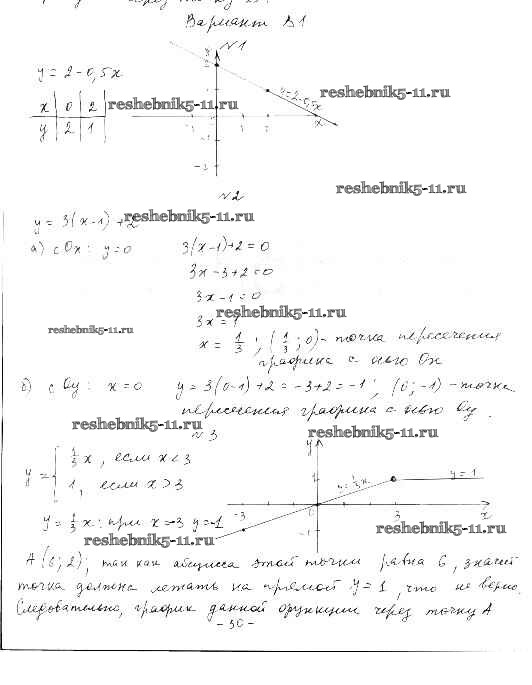 Вариант В1
№1
y = 2 - 0,5x
x | 0 | 2
y | 2 | 1
y = 2-0,5x
reshebnik5-11.ru
reshebnik5-11.ru
reshebnik5-11.ru
№2
y = 3(x-1) + 2
reshebnik5-11.ru
а) с Ox: y=0 3(x-1)+2=0
3x-3+2=0
3x-1=0
reshebnik5-11.ru
3x=1
reshebnik5-11.ru
x = 1/3 ; (1/3; 0) - точка пересечения
графика с осью Ox
б) с Oy: x=0 y = 3(0-1)+2 = -3+2 = -1; (0; -1) - точка
пересечения графика с осью Oy.
reshebnik5-11.ru
reshebnik5-11.ru
№3
y = { 1/3 x, если x<3
1, если x>3
y = 1/3 x
y = 1
-3
3
-1
x
y
y = 1/3 x: при x=-3 y=-1
reshebnik5-11.ru
reshebnik5-11.ru
A (6; 2); так как абсцисса этой точки равна 6, значит
точка должна лежать на прямой y=1, что не верно.
Следовательно, график данной функции через точку A
- 30 -